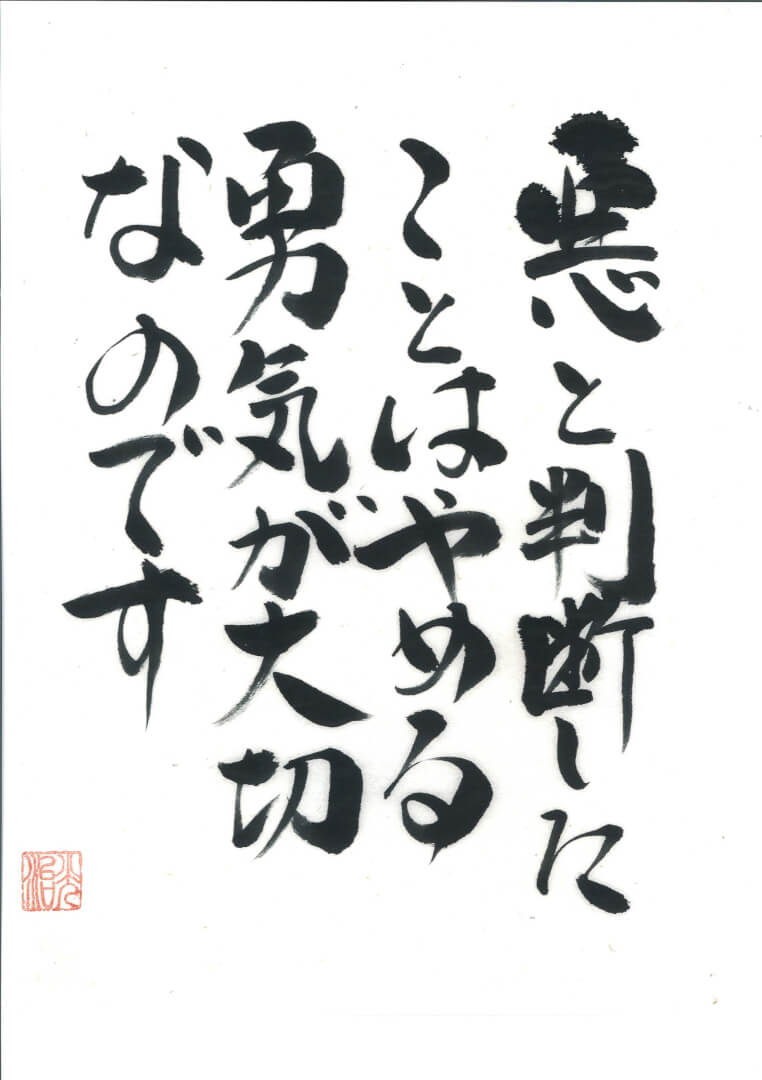 悪と判断した
ことはやめる
勇気が大切
なのです